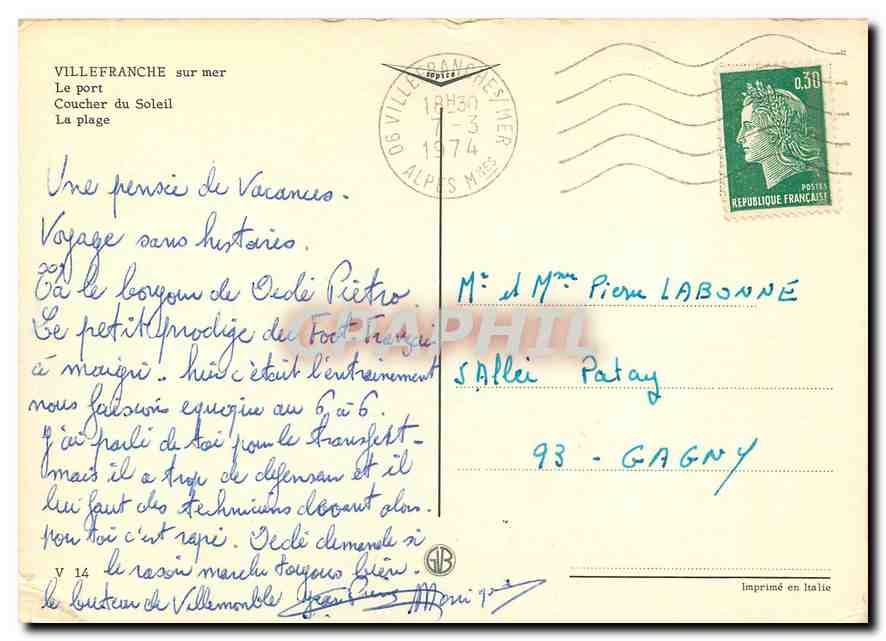 VILLEFRANCHE sur mer
Le port
Coucher du Soleil
La plage
sopico
06 VILLEFRANCHE S/MER
18H30
7-3
1974
ALPES Mmes
0,30
POSTES
REPUBLIQUE FRANÇAISE
Une pensée de Vacances.
Voyage sans histoires.
Tu le bonjour de Dédé Piétro
Le petit prodige du Foot Français
à maigri. hier c'était l'entrainement
nous faisions equipe au 6 à 6.
J'ai parlé de toi pour le transfert-
mais il a trop de defenseur et il
lui faut des techniciens devant alors.
pou toi c'est rapé. Dédé demande si
le rasoir marche toujours bien.
le buteur de Villemomble Jean Pierre Monique
Mr et Mme Pierre LABONNE
5 Allée Patay
93 - GAGNY
CPAPHIL
V 14
GLB
Imprimé en Italie